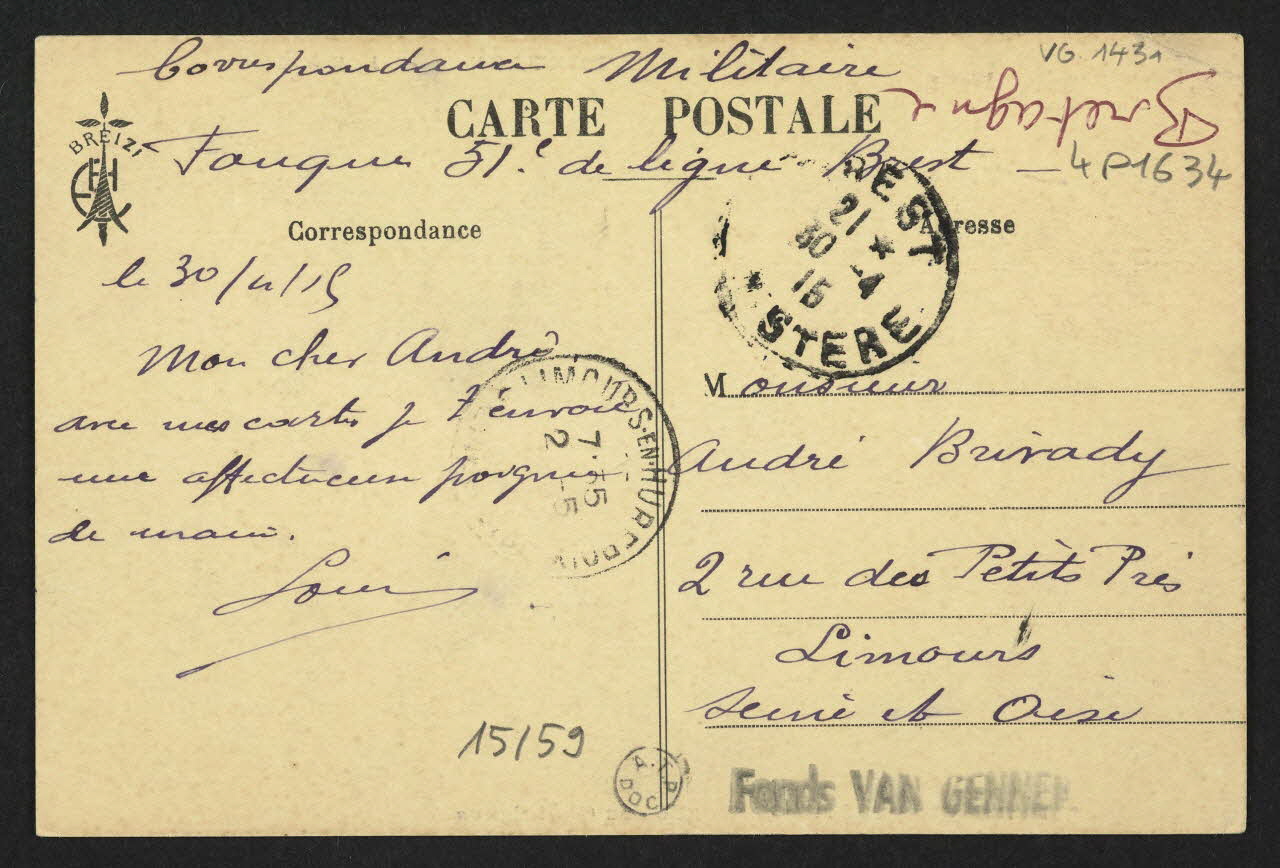 Correspondance Militaire
VG. 1431
Bretagne
CARTE POSTALE
BREIZ
51e de ligne Brest — 4P1634
Correspondance
Adresse
BREST
21 *
30 -4
15
*
STERE
le 30/4/15
Mon cher André
avec mes cartes je t'envoie
une affectueuse poignée
de main.
Louis
LIMOURS-EN-HUREPOIX
7·35
2 -5
Monsieur
André Brivady
2 rue des Petits Prés
Limours
Seine et Oise
15/59
A.T.P.
DOC
Fonds VAN GENNEP